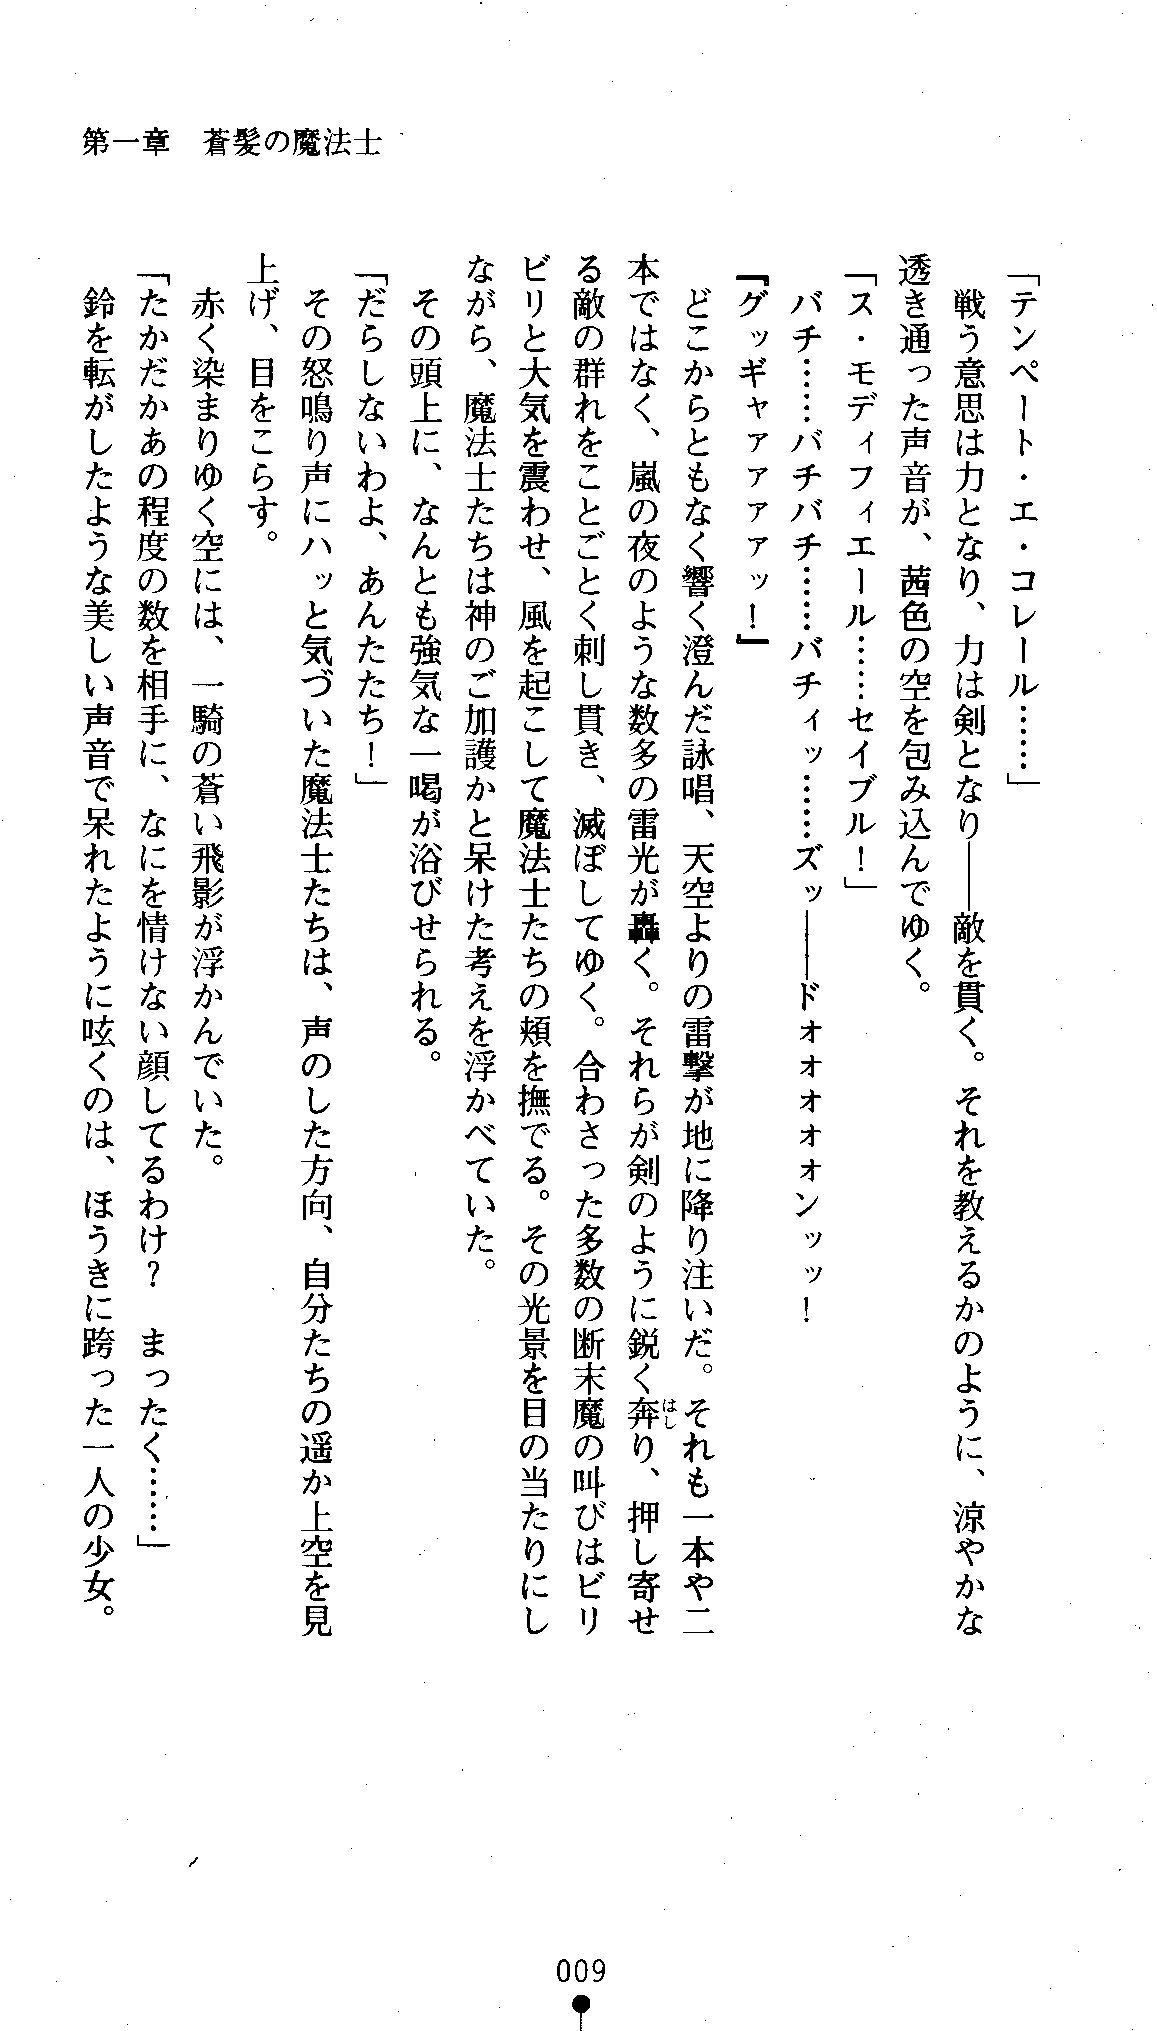 第一章　蒼髪の魔法士
「テンペート・エ・コレール……」
　戦う意思は力となり、力は剣となり――敵を貫く。それを教えるかのように、涼やかな
透き通った声音が、茜色の空を包み込んでゆく。
「ス・モディフィエール……セイブル！」
　バチ……バチバチ……バチィッ……ズッ――ドォォォォンッッ！
『グッギャァァァァッ！』
　どこからともなく響く澄んだ詠唱、天空よりの雷撃が地に降り注いだ。それも一本や二
本ではなく、嵐の夜のような数多の雷光が轟く。それらが剣のように鋭く奔り、押し寄せ
はし
る敵の群れをことごとく刺し貫き、滅ぼしてゆく。合わさった多数の断末魔の叫びはビリ
ビリと大気を震わせ、風を起こして魔法士たちの頬を撫でる。その光景を目の当たりにし
ながら、魔法士たちは神のご加護かと呆けた考えを浮かべていた。
　その頭上に、なんとも強気な一喝が浴びせられる。
「だらしないわよ、あんたたち！」
　その怒鳴り声にハッと気づいた魔法士たちは、声のした方向、自分たちの遥か上空を見
上げ、目をこらす。
　赤く染まりゆく空には、一騎の蒼い飛影が浮かんでいた。
「たかだかあの程度の数を相手に、なにを情けない顔してるわけ？　まったく……」
　鈴を転がしたような美しい声音で呆れたように呟くのは、ほうきに跨った一人の少女。
009